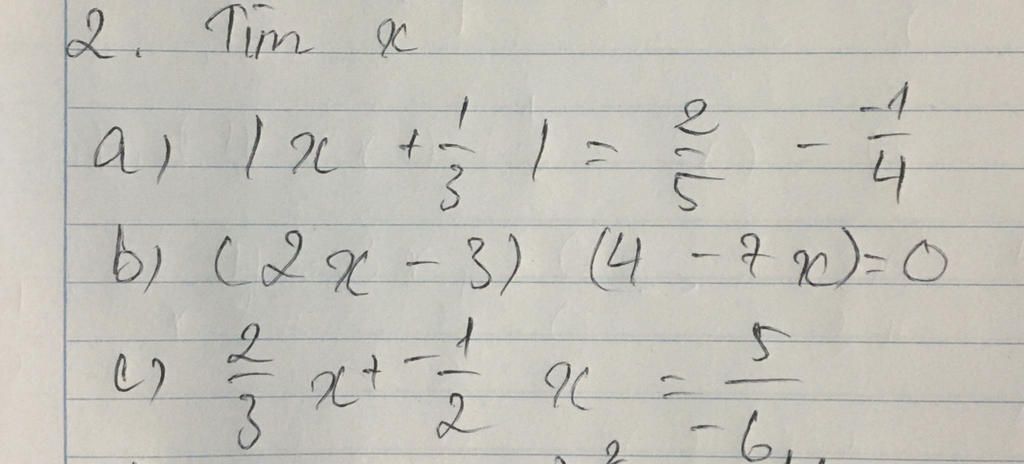 2. Tìm x
a) |x + 1/3| = 2/5 - -1/4
b) (2x - 3) (4 - 7x) = 0
c) 2/3 x + -1/2 x = 5/-6